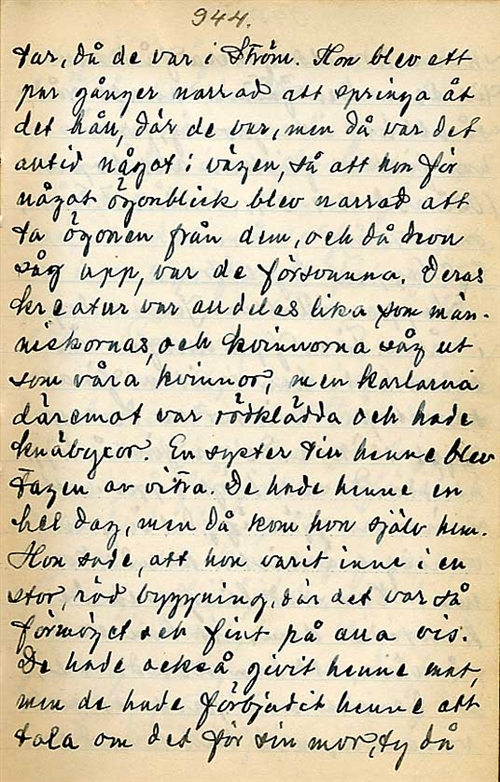 944.
tar, då de var i Ström. Hon blev ett
par gånger narrad att springa åt
det hån, där de var, men då var det
altid något i vägen, så att hon för
något ögonblick blev narrad att
ta ögonen från dem, och då hon
såg upp, var de försvunna. Deras
kreatur var alldeles lika som män-
niskornas, och kvinnorna såg ut
som våra kvinnor, men karlarna
däremot var rödklädda och hade
knäbyxor. En syster till henne blev
tagen av vitra. De hade henne en
hel dag, men då kom hon själv hem.
Hon sade, att hon varit inne i en
stor, röd byggning, där det var så
förnöjet och fint på alla vis.
De hade också givit henne mat,
men de hade förbjudit henne att
tala om det för sin mor, ty då